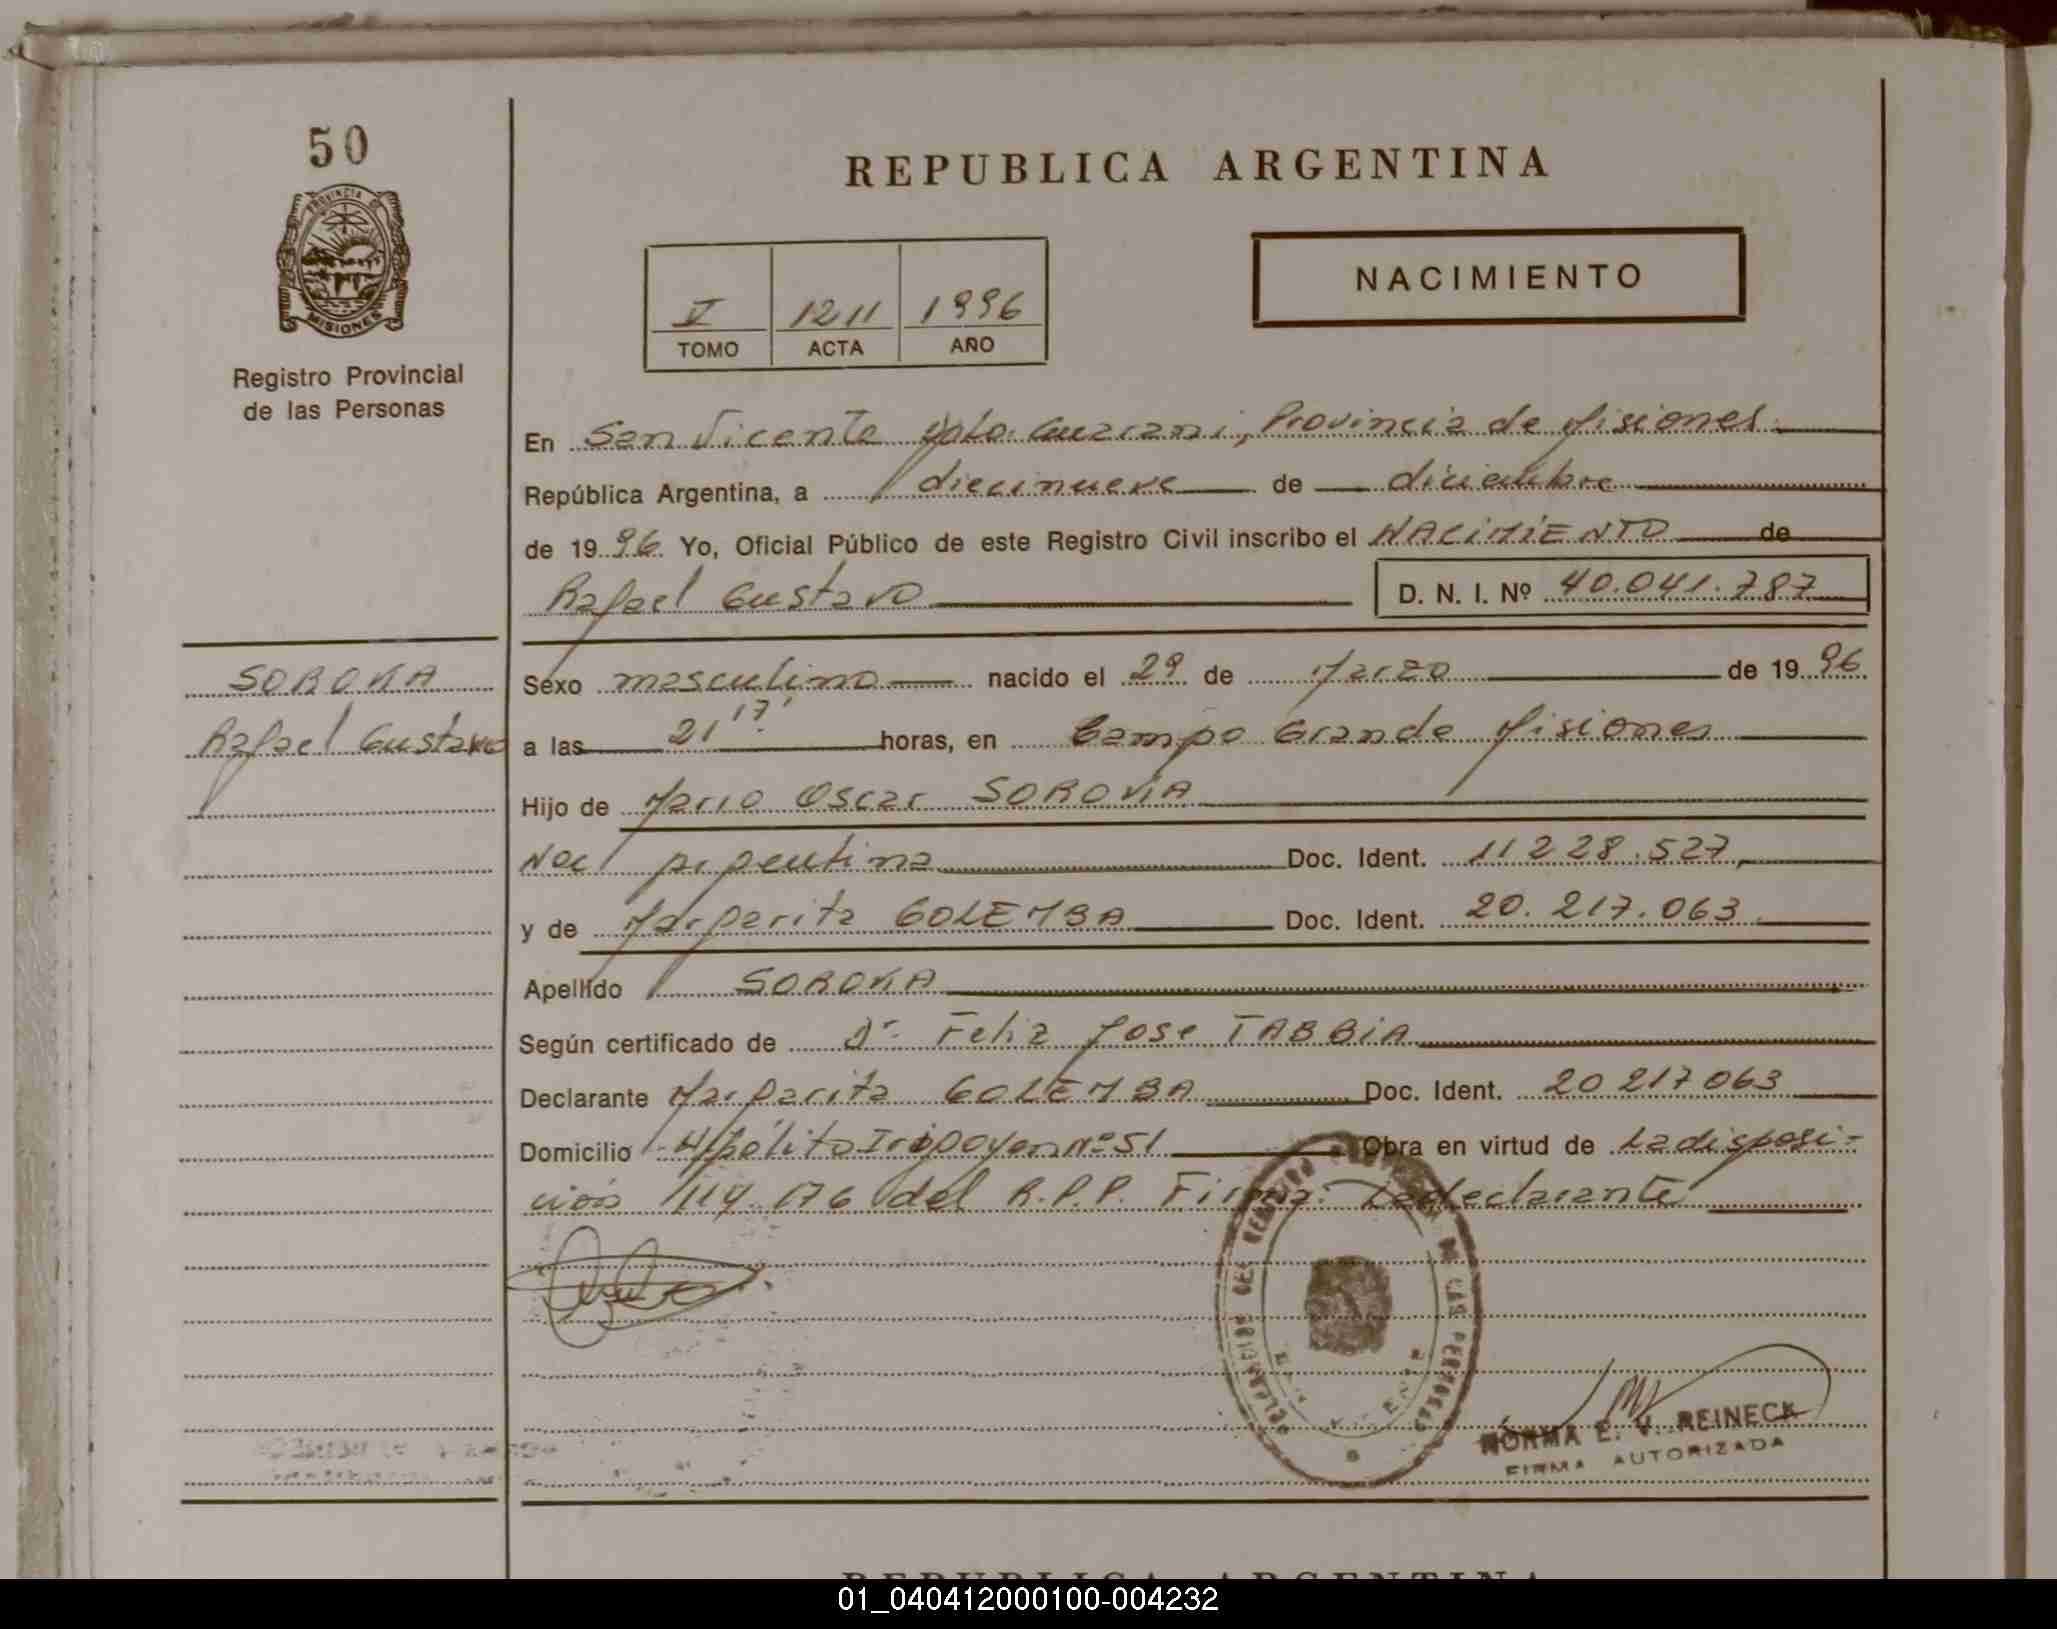 50
PROVINCIA DE
MISIONES
Registro Provincial
de las Personas
REPUBLICA ARGENTINA
V 1211 1996
TOMO ACTA AÑO
NACIMIENTO
En San Vicente Dpto. Guarani, Provincia de Misiones
República Argentina, a diecinueve de diciembre
de 1996 Yo, Oficial Público de este Registro Civil inscribo el NACIMIENTO de
Rafael Gustavo D. N. I. Nº 40.041.787
SOROKA
Rafael Gustavo
Sexo masculino nacido el 29 de Marzo de 1996
a las 21 17' horas, en Campo Grande Misiones
Hijo de Mario Oscar SOROKA
Nac argentina Doc. Ident. 11 228.527,
y de Margarita GOLEMBA Doc. Ident. 20.217.063
Apellido SOROKA
Según certificado de Dr. Feliz Jose TABBIA
Declarante Margarita GOLEMBA Doc. Ident. 20 217 063
Domicilio Hipólito Irigoyen nº 51 Obra en virtud de La disposi-
ción 114.176 del R.P.P. Firma: La declarante
NORMA E. V. REINECK
FIRMA AUTORIZADA
REPUBLICA ARGENTINA
01_040412000100-004232